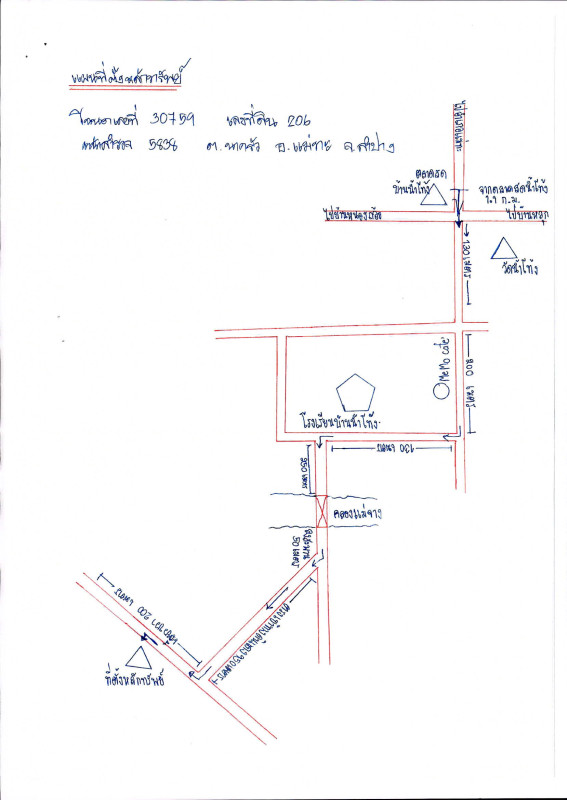 แผนที่ตั้งหลักทรัพย์
โฉนดเลขที่ 30759 เลขที่ดิน 206
หน้าสำรวจ 5838 ต. นาครัว อ. แม่ทะ จ. ลำปาง
ตลาดสด
บ้านน้ำโท้ง
จากตลาดสดน้ำโท้ง
1.1 ก.ม.
ไปบ้านหนอง
ไปบ้านหลุก
130 เมตร
วัดน้ำโท้ง
Me Mo cafe'
200 เมตร
โรงเรียนบ้านน้ำโท้ง
130 เมตร
350 เมตร
คลองแม่จาง
50 เมตร
350 เมตร
200 เมตร
ที่ตั้งหลักทรัพย์